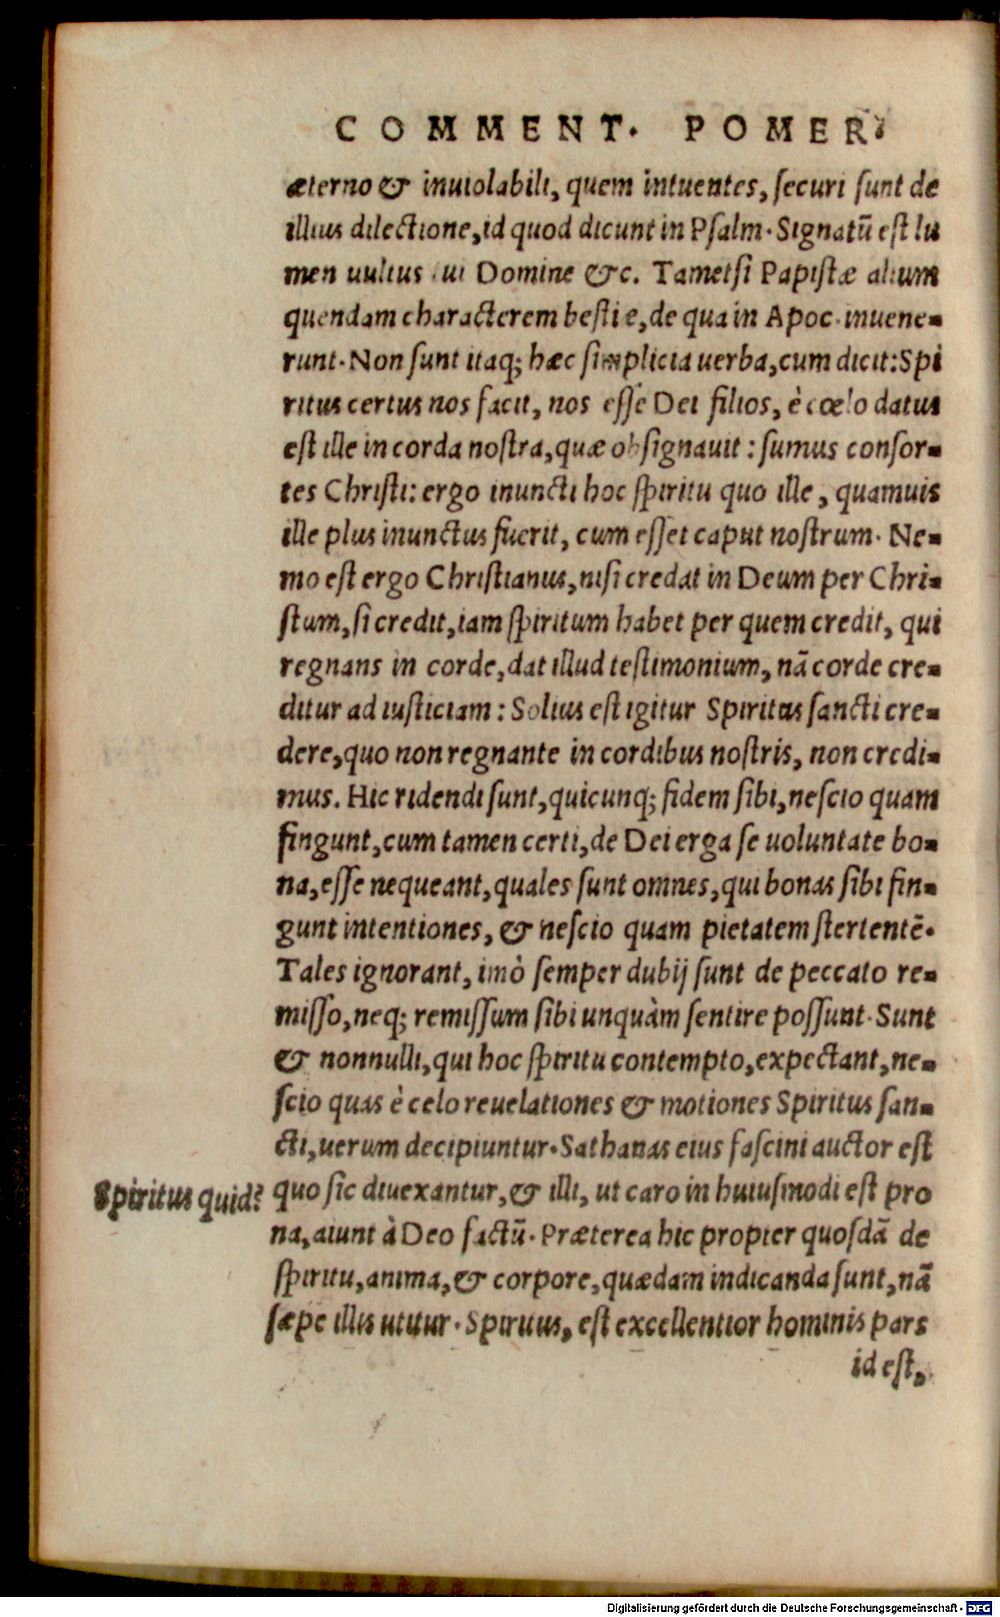 COMMENT. POMER.
æterno & inuiolabili, quem intuentes, ſecuri ſunt de
illius dilectione, id quod dicunt in Pſalm. Signatū eſt lu
men uultus tui Domine &c. Tametſi Papiſtæ alium
quendam characterem beſtie, de qua in Apoc. inuene-
runt. Non ſunt itaq; hæc ſimplicia uerba, cum dicit: Spi
ritus certus nos facit, nos eſſe Dei filios, è cœlo datus
eſt ille in corda noſtra, quæ obſignauit : ſumus conſor-
tes Chriſti: ergo inuncti hoc ſpiritu quo ille, quamuis
ille plus inunctus fuerit, cum eſſet caput noſtrum. Ne-
mo eſt ergo Chriſtianus, niſi credat in Deum per Chri-
ſtum, ſi credit, iam ſpiritum habet per quem credit, qui
regnans in corde, dat illud teſtimonium, nā corde cre-
ditur ad iuſticiam : Solius eſt igitur Spiritus ſancti cre-
dere, quo non regnante in cordibus noſtris, non credi-
mus. Hic ridendi ſunt, quicunq; fidem ſibi, neſcio quam
fingunt, cum tamen certi, de Dei erga ſe uoluntate bo-
na, eſſe nequeant, quales ſunt omnes, qui bonas ſibi fin-
gunt intentiones, & neſcio quam pietatem ſtertentē.
Tales ignorant, imò ſemper dubij ſunt de peccato re-
miſſo, neq; remiſſum ſibi unquàm ſentire poſſunt. Sunt
& nonnulli, qui hoc ſpiritu contempto, expectant, ne-
ſcio quas è celo reuelationes & motiones Spiritus ſan-
cti, uerum decipiuntur. Sathanas eius faſcini auctor eſt
Spiritus quid?
quo ſic diuexantur, & illi, ut caro in huiuſmodi eſt pro
na, aiunt à Deo factū. Præterea hic propter quoſdā de
ſpiritu, anima, & corpore, quædam indicanda ſunt, nā
ſæpe illis utitur. Spiritus, eſt excellentior hominis pars
id eſt,
Digitalisierung gefördert durch die Deutsche Forschungsgemeinschaft - DFG